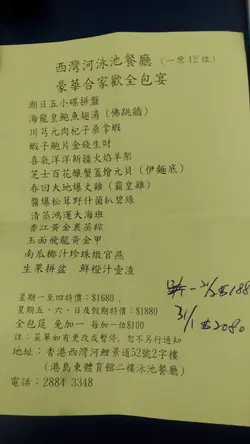 西灣河泳池餐廳 (一席12位)
豪華合家歡全包宴
潮日五小碟拼盤
海龍皇鮑魚翅湯 (佛跳牆)
川芎元肉杞子桑拿蝦
蝦子鮑片金錢生財
喜氣洋洋新疆火焰羊架
芝士百花釀蟹蓋燴元貝 (伊麵底)
春回大地爆丈雞 (霸皇雞)
醬爆松茸野什菌扒碧綠
清蒸鴻運大海班
香江黃金裹蒸粽
玉面飛龍黃金甲
南瓜椰汁珍珠燉官燕
生果拼盆 鮮橙汁壹渣
星期一至四特價：$1680，
星期五、六、日及假期特價：$1880
全包莚 免加一 每加一位$100
註：菜單如有更改或暫停，恕不另行通知
地址：香港西灣河鯉景道52號2字樓
(港島東體育館二樓泳池餐廳)
電話：2884 3348
31/1 $2080